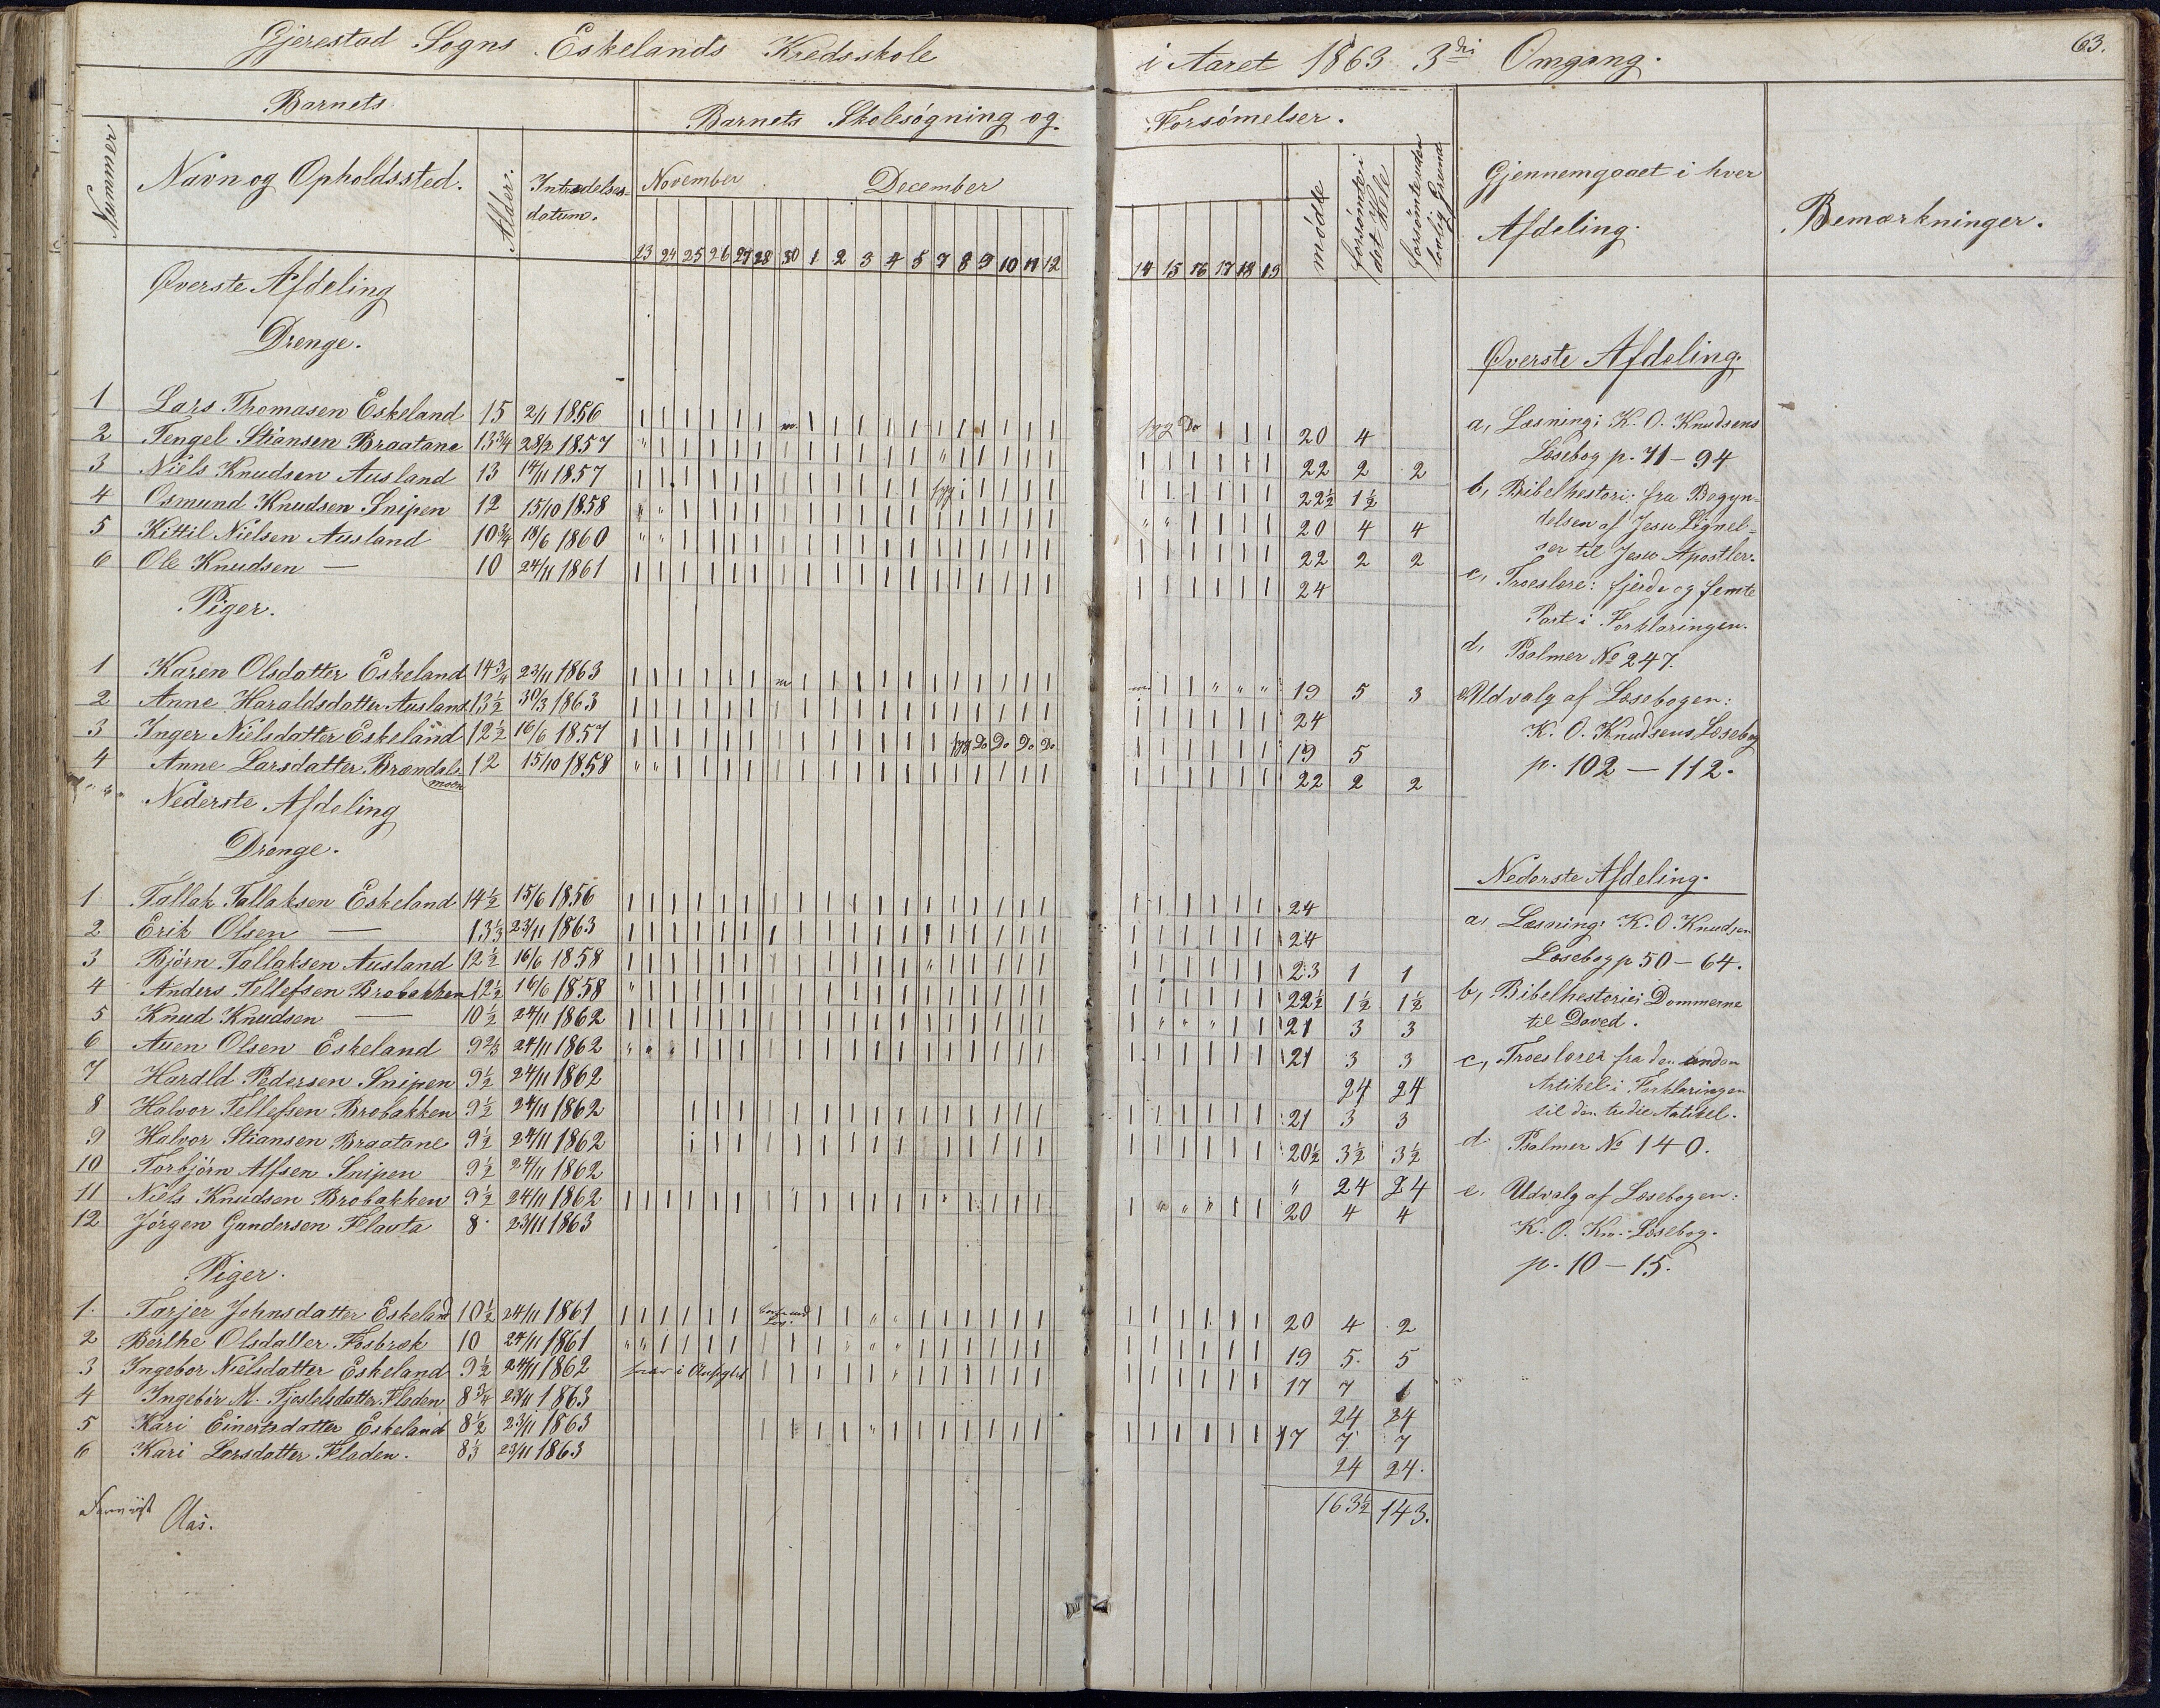 Gjerestad Sogns Eskelands Kredsskole i Aaret 1863 3die Omgang. 63.
Barnets
Barnets Skolesøgning og Forsømelser.
Nummer
Navn og Opholdssted.
Alder.
Indtrædelses-
datum.
November December
mødte
forsømte i det Hele
forsømte uden lovlig Grund
Gjennemgaaet i hver
Afdeling.
Bemærkninger.
23 24 25 26 27 28 30 1 2 3 4 5 7 8 9 10 11 12 14 15 16 17 18 19
Øverste Afdeling
Drenge.
1 Lars Thomasen Eskeland 15 2/1 1856 20 4
2 Tengel Stiansen Braatane 13 3/4 28/2 1857 22 2 2
3 Niels Knudsen Ausland 13 14/11 1857 22½ 1½
4 Osmund Knudsen Snipen 12 15/10 1858 20 4 4
5 Kittil Nielsen Ausland 10¾ 18/6 1860 22 2 2
6 Ole Knudsen — 10 24/11 1861 24
Piger.
1 Karen Olsdatter Eskeland 14¾ 23/11 1863 19 5 3
2 Anne Haraldsdatter Ausland 13½ 30/3 1863 24
3 Inger Nielsdatter Eskeland 12½ 16/6 1857 19 5
4 Anne Larsdatter Brændals 12 15/10 1858 22 2 2
moen
Nederste Afdeling
Drenge.
1 Tallak Tallaksen Eskeland 14½ 15/6 1856 24
2 Erik Olsen — 13⅓ 23/11 1863 24
3 Bjørn Tallaksen Ausland 12½ 16/6 1858 23 1 1
4 Anders Tellefsen Brobakken 12½ 16/6 1858 22½ 1½ 1½
5 Knud Knudsen — 10½ 24/11 1862 21 3 3
6 Auen Olsen Eskeland 9⅔ 24/11 1862 21 3 3
7 Harald Pedersen Snipen 9½ 24/11 1862 24 24
8 Halvor Tellefsen Brobakken 9½ 24/11 1862 21 3 3
9 Halvor Stiansen Braatane 9½ 24/11 1862 20½ 3½ 3½
10 Torbjørn Alfsen Snipen 9½ 24/11 1862 " 24 24
11 Niels Knudsen Brobakken 9½ 24/11 1862 20 4 4
12 Jørgen Gundersen Flauta 8 23/11 1863
Piger.
1. Tarjer Johnsdatter Eskeland 10½ 24/11 1861 20 4 2
2 Berthe Olsdatter Fosbræk 10 24/11 1861 19 5 5
3 Ingebor Nielsdatter Eskeland 9½ 24/11 1862 17 7 1
4 Ingebør M. Tjostelsdatter Fladen 8¾ 23/11 1863 24 24
5 Kari Einertsdatter Eskeland 8½ 23/11 1863 17 7 7
6 Kari Larsdatter Fladen. 8⅓ 23/11 1863 24 24.
163½ 143.
Aas.
Øverste Afdeling.
a, Læsning: K. O. Knudsens
Læsebog p. 71 – 94
b, Bibelhestori: fra Begyn-
delsen af Jesu Lignel-
ser til Jesu Apostler.
c, Troeslære: fjerde og femte
Part i Forklaringen.
d, Psalmer № 247.
e, Udvalg af Læsebogen:
K. O. Knudsens Læsebog
p. 102 — 112.
Nederste Afdeling.
a, Læsning: K. O. Knudsen
Læsebog p 50 – 64.
b, Bibelhestorie: Dommerne
til David.
c, Troeslære: fra den anden
Artikel i Forklaringen
til den tredie Artikel.
d. Psalmer № 140.
e. Udvalg af Læsebogen:
K. O. Kn. Læsebog.
p. 10 – 15.